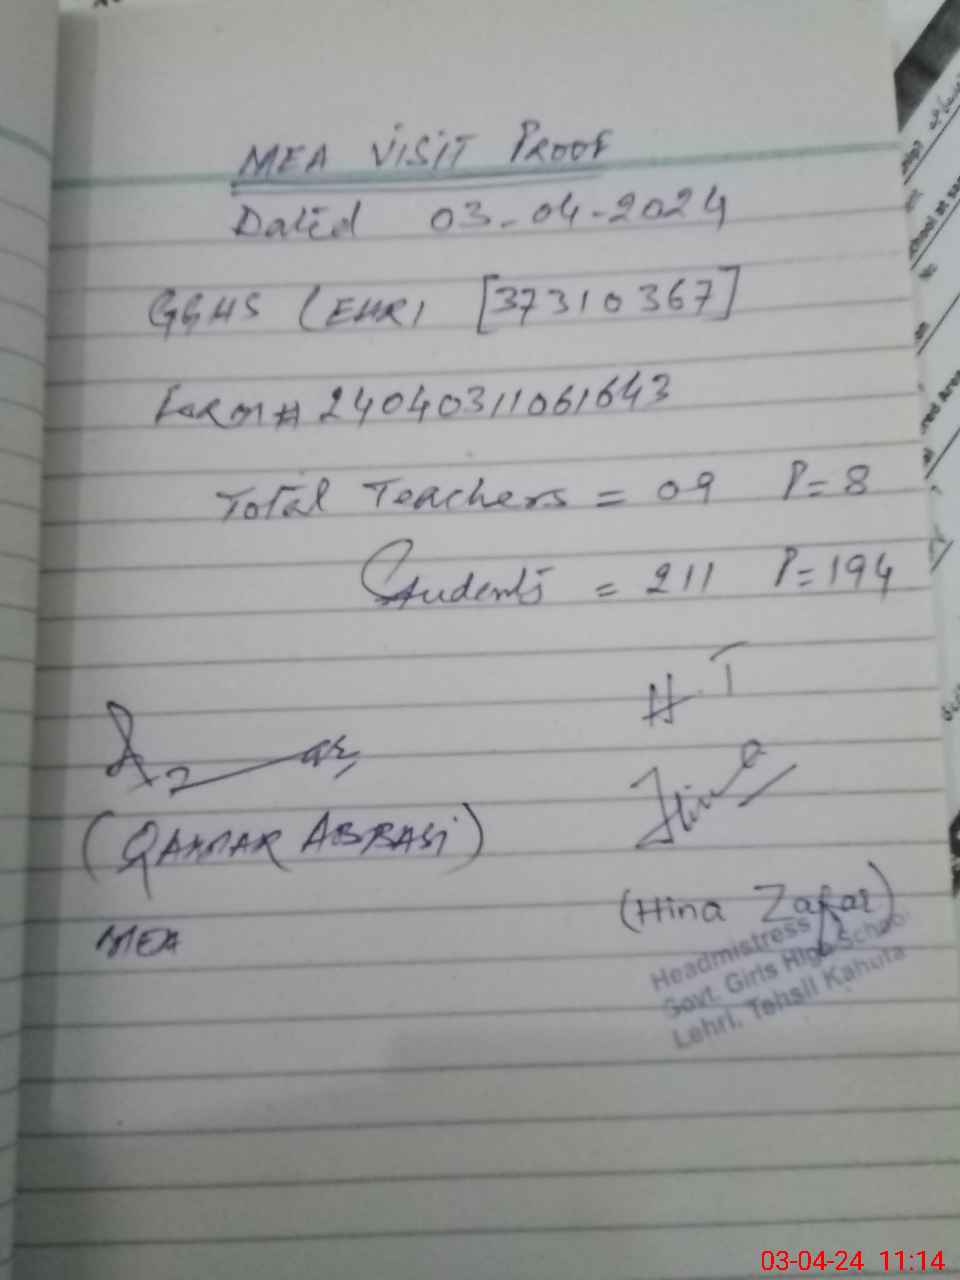 MEA VISIT PROOF
Dated 03-04-2024
GGHS LEHRI [37310367]
Form # 24040311061643
Total Teachers = 09 P=8
Students = 211 P=194
H.T
Hina
(QAMAR ABBASI)
(Hina Zafar)
MEA
Headmistress
Govt. Girls High School
Lehri, Tehsil Kahuta
03-04-24 11:14